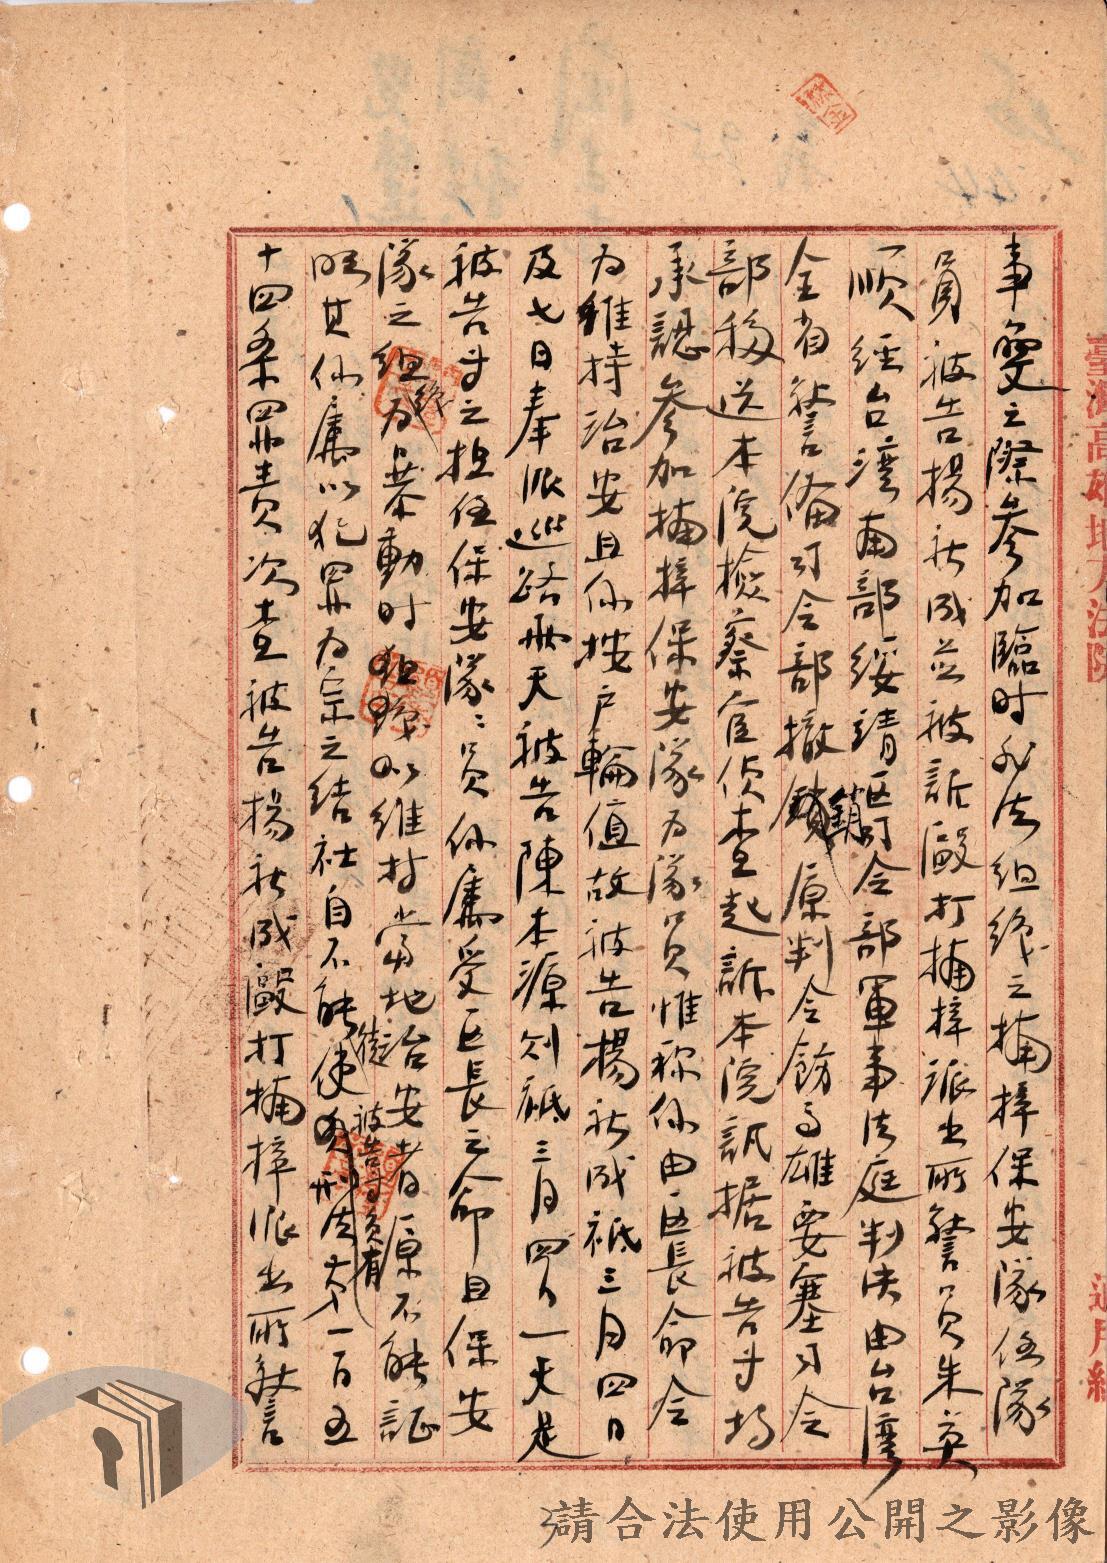 事變之際參加臨時非法組織之楠梓保安隊任隊
員被告楊秋成並被訴毆打楠梓派出所警員朱英
順經台灣南部綏靖區司令部軍事法庭判決由台灣
全省警備司令部撤銷原判令飭高雄要塞司令
部移送本院檢察官偵查起訴本院訊据被告等均
承認參加楠梓保安隊為隊員惟称係由區長命令
為維持治安且係按戶輪值故被告楊秋成祗三月四日
及七日奉派巡路兩天被告陳本源則祗三月四日一天是
被告等之担任保安隊隊員係屬受區長之命且保安
隊之組織為暴動時以維持當地治安者原不能証
明其係屬以犯罪為宗之結社自不能使被告等負有刑法第一百五
十四条罪責次查被告楊秋成毆打楠梓派出所警
臺灣高雄地方法院
適用紙
請合法使用公開之影像